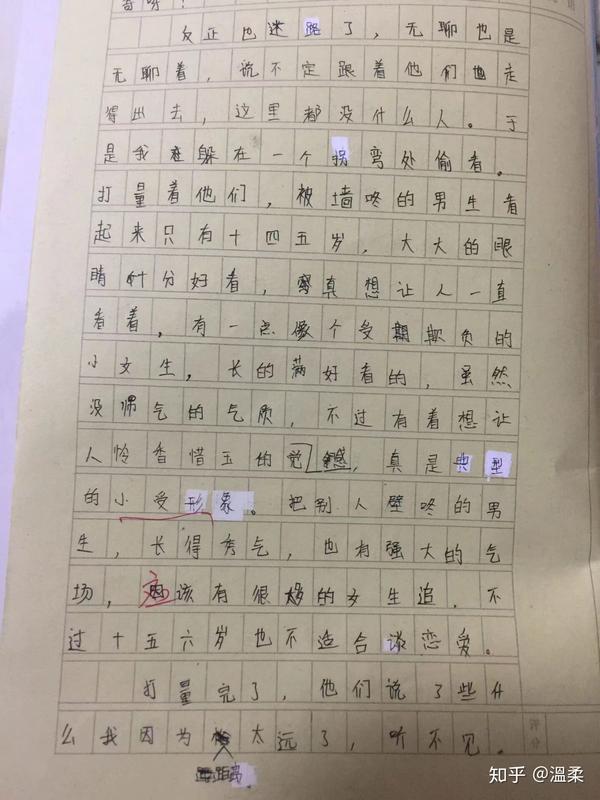 奇呀？
反正也迷路了，无聊也是
无聊着，说不定跟着他们也走
得出去，这里都没什么人。于
是我躲在一个拐弯处偷看。
打量着他们，被墙咚的男生看
起来只有十四五岁，大大的眼
睛十分好看，真想让人一直
看着，有一点像个受期欺负的
小女生，长的满好看的，虽然
没帅气的气质，不过有着想让
人怜香惜玉的感觉，真是典型
的小受形象。把别人壁咚的男
生，长得秀气，也有强大的气
场，应该有很多的女生追，不
过十五六岁也不适合谈恋爱。
打量完了，他们说了些什
么我因为太远了，听不见。
距离
评分
知乎 @溫柔